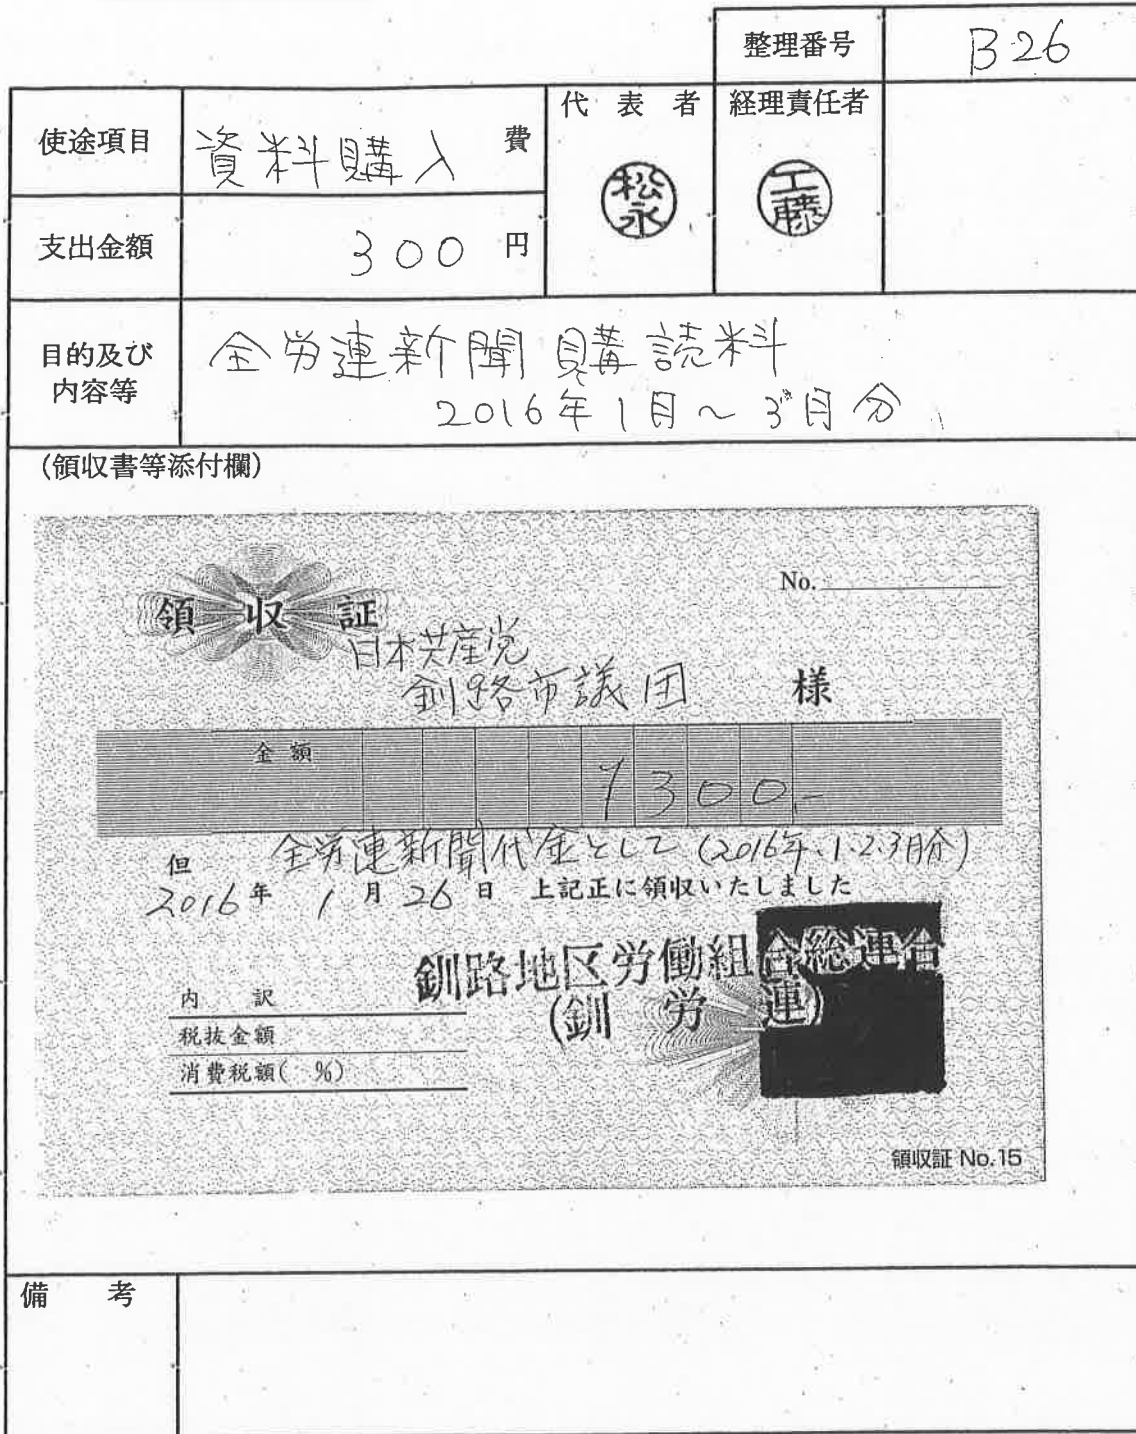 整理番号 B-26
使途項目 資料購入 費
代表者 経理責任者
松永 工藤
支出金額 300 円
目的及び
内容等
全労連新聞購読料
2016年1月~3月分
(領収書等添付欄)
領収証
No.
日本共産党
釧路市議団 様
金額 ¥300.-
但 全労連新聞代金として (2016年.1.2.3月分)
2016年 1月 26日 上記正に領収いたしました
釧路地区労働組合総連合
(釧労連)
内訳
税抜金額
消費税額( %)
領収証 No.15
備考